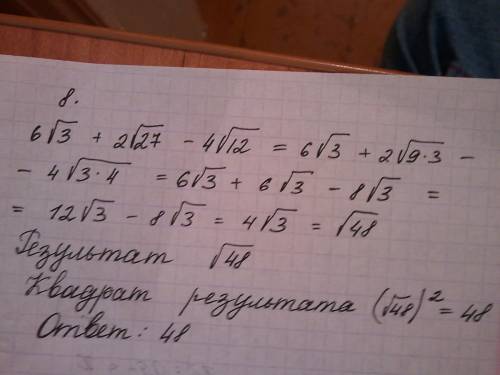 8.
6√3 + 2√27 - 4√12 = 6√3 + 2√9·3 -
- 4√3·4 = 6√3 + 6√3 - 8√3 =
= 12√3 - 8√3 = 4√3 = √48
Результат √48
Квадрат результата (√48)² = 48
Ответ: 48